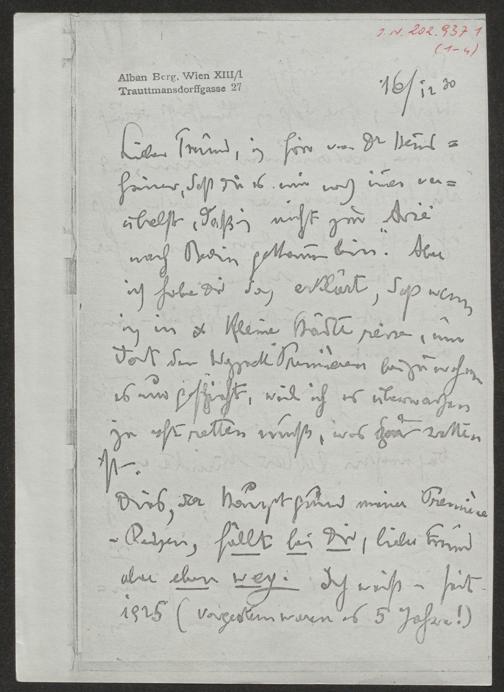 I.N. 202.937 1
(1-4)
Alban Berg, Wien XIII/1
Trauttmansdorffgasse 27
16/12 30
Lieber Freund, ich höre von Dr
daß Du es mir noch immer ver=
übelst, daß ich nicht zur "Arie"
nach Berlin gekommen bin. Aber
ich habe Dir doch erklärt, daß wenn
ich in kleine Städte reise, um
dort den Wozzeck Premièren beizuwohnen
es nur geschieht, weil ich es überwachen
u. oft retten muß, was zu retten
ist.
Dies, der Hauptgrund meiner Première
-Reisen, fällt bei Dir, lieber Freund
aber eben weg. Ich weiß – seit
1925 (vorgestern waren es 5 Jahre!)